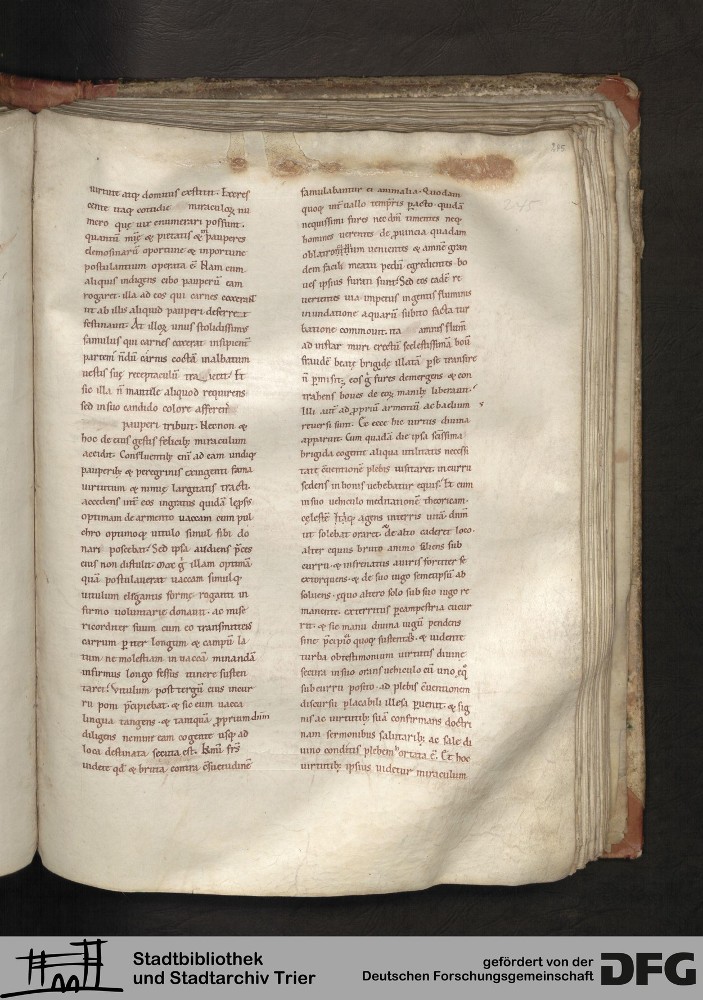 245
uirtute atq; dominus extitit. Exeres
cente itaq; cotidie miraculoꝝ nu
mero quę uix enumerari possunt.
quantũ mie & pietatis & pauperes
demosinarũ oportune & inportune
postulantium operata ẽ. Nam cum
aliquis indigens cibo pauperũ eam
rogaret. illa ad eos qui carnes coxerant
ut ab illis aliquid pauperi deferret
festinauit. At illoꝝ unus stolidissimus
famulus qui carnes coxerat insipienť
partem ñdũ carnis coctã in albatum
uestis suę receptaculũ traiecit. Et
sic illa ñ mantile aliquod requirens
sed in suo candido colore afferens
pauperi tribuit. Necnon &
hoc de eius gestis felicib; miraculum
accidit. Confluentib; eni ad eam undiq;
pauperib; & peregrinis exingenti fama
uirtutum & nimię largitatis tracti.
accedens int eos ingratus quidã leprosus
optimam de armento uaccam cum pul
chro optimoq; uitulo simul sibi do
nari poscebat. Sed ipsa audiens pces
eius non distulit. Mox g̓ illam optimã
quã postulauerat uaccam simulq;
uitulum elegantis formę roganti in
firmo uoluntarie donauit. ac mise
ricorditer suum cum eo transmittens
carrum p iter longum & campũ la
tum ne molestiam in uacca minandã
infirmus longo fessus itinere susten
taret. Vitulum post tergũ eius in cur
ru poni pcipiebat. & sic eum uacca
lingua tangens. & tamquã pprium dnm
diligens nemine eam cogente usq; ad
loca destinata secuta est. Kmi frs
uidete qd & bruta contra csuetudinẽ
famulabantur ei animalia. Quodam
quoq; int uallo temporis pacto. quidã
nequissimi fures nec dm timentes neq;
homines uerentes de puincia quadam
uenientes & amnẽ gran
dem facili meatu pedũ egredientes bo
ues ipsius furati sunt. Sed eos eadẽ re
uertentes uia impetus ingentis fluminis
inundatione aquarũ subito facta tur
batione commouit. ita amnis flum
ad instar muri erectũ scelestissimã boũ
fraudẽ beatę brigidę illatã p se transire
ñ pmisit; eos g̓ fures demergens & con
trahens boues de eoꝝ manib; liberauit.
Illi aut ad ppriũ armentũ ac bacium
reuersi sunt. Ce ecce hic uirtus diuina
apparuit. Cum quadã die ipsa scissima
brigida cogente aliqua utilitatis necessi
tate cuentionẽ plebis uisitaret. in curru
sedens in bonis uehebatur equis. Et cum
in suo uehiculo meditationẽ theoricam
celestẽ itaq; agens in terris uitã. dnm
ut solebat oraret. de alto uideret loco.
alter equus bruto animo saliens sub
curru. & infrenatus auriis fortiter se
extorquens. & de suo iugo semetipsũ ad
soluens. equo altero solo sub suo iugo re
manente. exterritus p campestria cucur
rit. & sic manu diuina iugũ pendens
sine pcipio quoq; sustentãs. & uidente
turba ob testimonium uirtutis diuinę
secura in suo orans uehiculo cũ uno eq̊
sub curru posito. ad plebis cuentionem
discursu placabili illesa puenit. & sig
nis ac uirtutib; suã confirmans doctri
nam sermonibus salutarib; ac sale di
uino conditis plebem hortata ẽ. Et hoc
uirtutib; ipsius uidetur miraculum
Stadtbibliothek
und Stadtarchiv Trier
gefördert von der
Deutschen Forschungsgemeinschaft
DFG